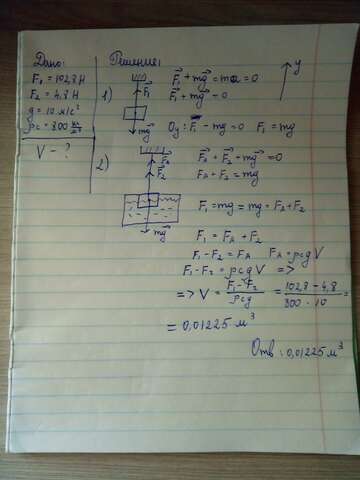 Дано:
F₁ = 102,8 Н
F₂ = 4,8 Н
g = 10 м/с²
ρс = 800 кг/м³
V - ?
Решение:
1)
F₁
mg
F₁ + mg = ma = 0
F₁ + mg = 0
y
Oy: F₁ - mg = 0 F₁ = mg
2)
FA
F₂
mg
FA + F₂ + mg = 0
FA + F₂ = mg
F₁ = mg = mg = FA + F₂
F₁ = FA + F₂
F₁ - F₂ = FA FA = ρcgV
F₁ - F₂ = ρcgV =>
=> V = (F₁ - F₂)/(ρcg) = (102,8 - 4,8)/(800 · 10) =
= 0,01225 м³
Отв: 0,01225 м³